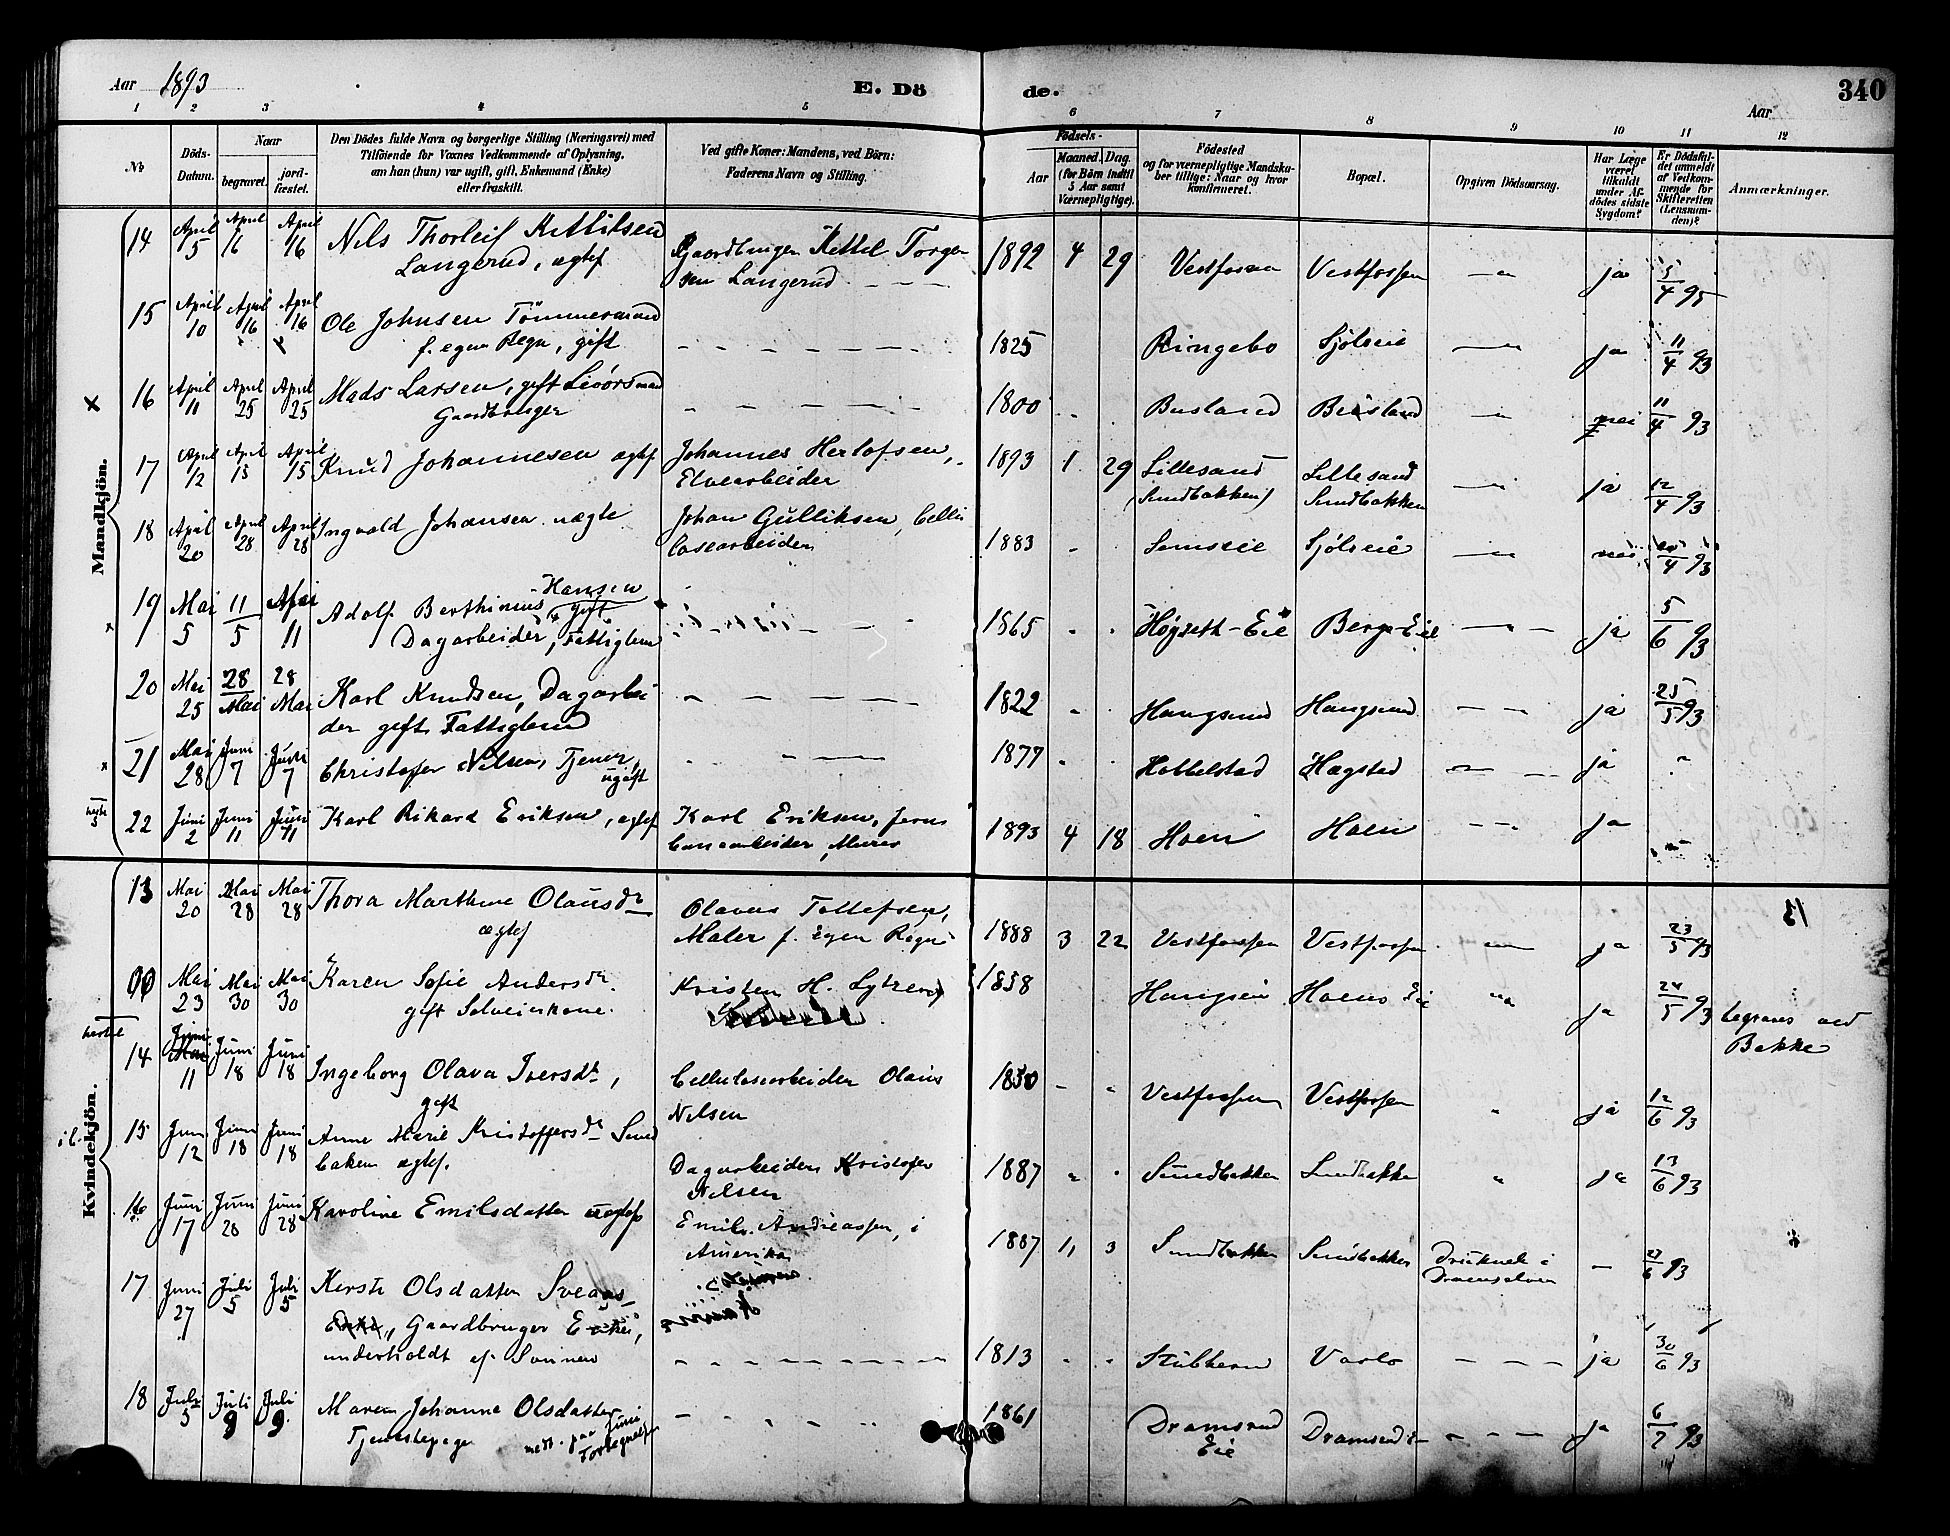 Aar 1893
E. Döde.
Aar
340
1 2 3 4 5 6 7 8 9 10 11 12
No
Döds-Datum.
Naar
begravet.
jordfæstet.
Den Dödes fulde Navn og borgerlige Stilling (Næringsvei) med
Tilföiende for Voxnes Vedkommende af Oplysning,
om han (hun) var ugift, gift, Enkemand (Enke)
eller fraskilt.
Ved gifte Koner: Mandens, ved Börn:
Faderens Navn og Stilling.
Födsels-
Aar
Maaned. Dag.
(for Börn indtil
5 Aar samt
Værnepligtige).
Födested
og for værnepligtige Mandskaber tillige: Naar og hvor
konfirmeret.
Bopæl.
Opgiven Dödsaarsag.
Har Læge
været
tilkaldt
under Afdödes sidste
Sygdom?
Er Dödsfaldet anmeldt
af Vedkommende for
Skifteretten
(Lensmanden)?
Anmærkninger.
Mandkjön.
14 April 5 April 16 April 16 Nels Thorleif Kittilsen
Langerud, ægtef
Gaardbruger Kettil Torgersen Langerud
1892 4 29 Vestfossen Vestfossen ja 5/4 95
15 April 10 April 16 April 16 Ole Johnsen Tömmermand
f. egen Regn, gift
1825 Ringebo Sjölseie ja 11/4 93
16 April 11 April 25 April 25 Mads Larsen, gift Livörsmand
Gaardbruger
1800 Busland Busland nei 11/4 93
17 April 12 April 15 April 15 Knud Johannesen ægtef
Johannes Herlofsen,
Elvearbeider
1893 1 29 Lillesand
(Sundbakken)
Lillesand
Sundbakken
ja 12/4 93
18 April 20 April 28 April 28 Ingvald Johansen uægte
Johan Gulliksen, Cellulosearbeider
1883 Semseie Sjölseie nei 20/4 93
19 Mai 5 11/5 Mai 11 Adolf Berthinius Hansen
gift
Dagarbeider, Fattiglem
1865 Høgseth-Eie Berg-Eie ja 5/6 93
20 Mai 25 28 Mai 28 Mai Karl Knudsen, Dagarbeider gift Fattiglem
1822 Haugsund Haugsund ja 25/5 93
21 Mai 28 Juni 7 Juni 7 Christofer Nilsen, Tjener,
ugift
1877 Hobbelstad Hægstad ja
22 Juni 2 Juni 11 Juni 11 Karl Rikard Eriksen, ægtef
Karl Eriksen, Jernbanearbeider, Murer
1893 4 18 Hoen Hoen ja
Kvindekjön.
13 Mai 20 Mai 28 Mai 28 Thora Marthine Olausdr
ægtef
Olaves Tollefsen,
Maler f. Egen Regn
1888 3 22 Vestfossen Vestfossen ja 23/5 93
13
00 Mai 23 Mai 30 Mai 30 Karen Sofie Andersdr.
gift Selveierkone.
Kristen H. Lytzerød
1858 Haugseie Hoens Eie ja 24/5 93 begraves ved
Bakke
14 Juni 11 Juni 18 Juni 18 Ingeborg Olava Iversdr,
gift
Cellulosearbeider Olaus
Nelsen
1850 Vestfossen Vestfossen ja 12/6 93
15 Juni 12 Juni 18 Juni 18 Anne Marie Kristoffersdr Sundbaken ægtef.
Dagarbeider Kristofer
Nelsen
1887 Sundbakken Sundbakke ja 13/6 93
16 Juni 17 Juni 28 Juni 28 Karoline Emilsdatter uægtef
Emil Andreassen, i
Amerika
1887 11 3 Sundbakken Sundbakken Druknet i
Dramselven
27/6 93
17 Juni 27 Juli 5 Juli 5 Kersti Olsdatter
Gaardbruger Enke,
underholdt af Sönnen
1813 Stubberud Varlo ja 30/6 93
18 Juli 5 Juli 9 Juli 9 Maren Johanne Olsdatter
Tjenestepige
medt. paa Juni
Fortegnelsen
1861 Dramsrud
Eie
Dramsrud ja 6/7 93